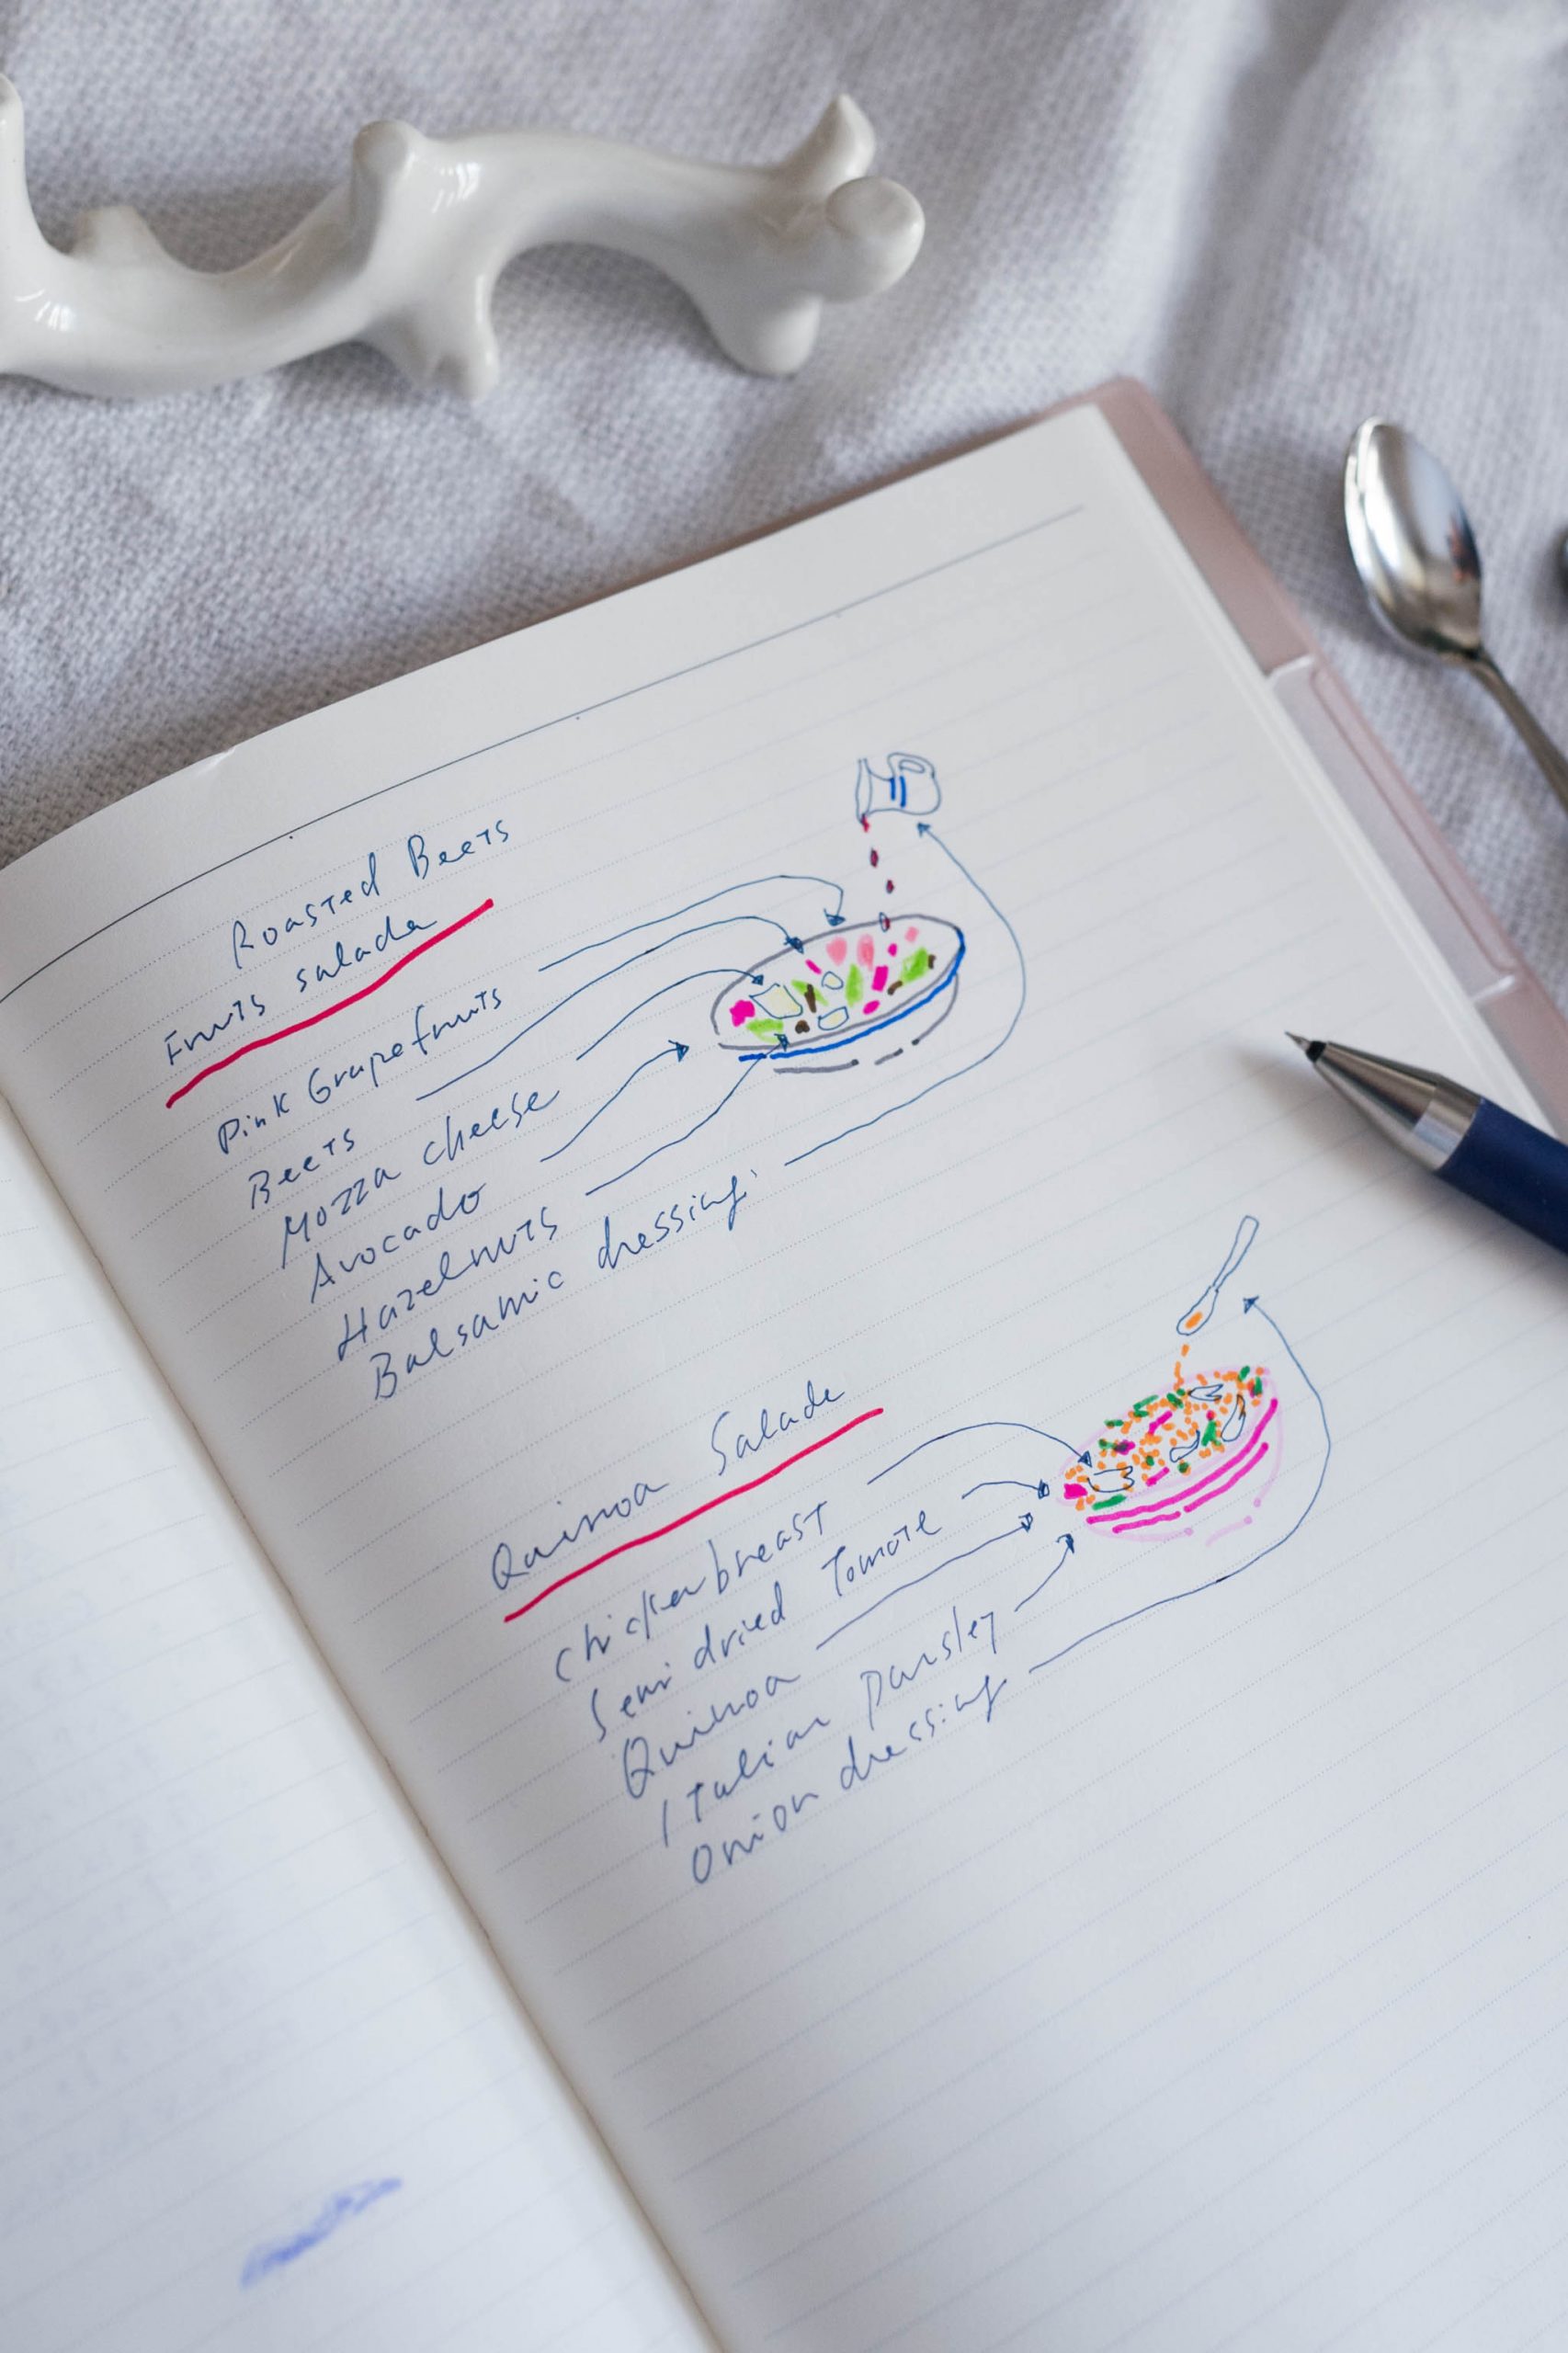 Roasted Beets
Fruits salade
Pink Grapefruits
Beets
Mozza cheese
Avocado
Hazelnuts
Balsamic dressing.
Quinoa Salade
Chickenbreast
Semi dried Tomate
Quinoa
Italian parsley
Onion dressing